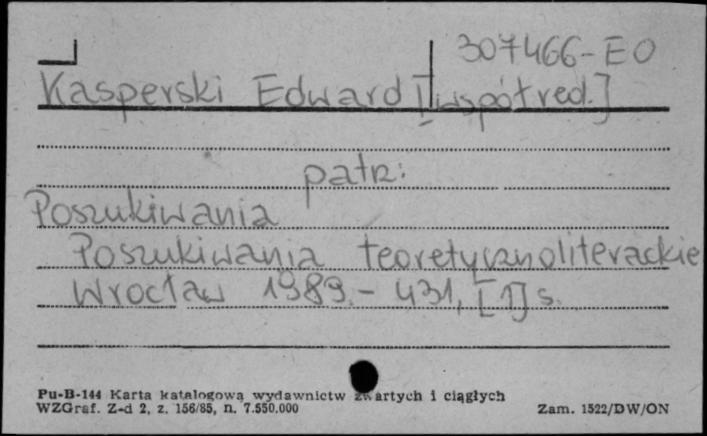 307466-EO
Kasperski Edward [współred.]
patrz:
Poszukiwania
Poszukiwania teoretycznoliterackie
Wrocław 1989.- 431, [1] s.
Pu-B-144 Karta katalogowa wydawnictw zwartych i ciągłych
WZGraf. Z-d 2, z. 156/85, n. 7.550.000
Zam. 1522/DW/ON